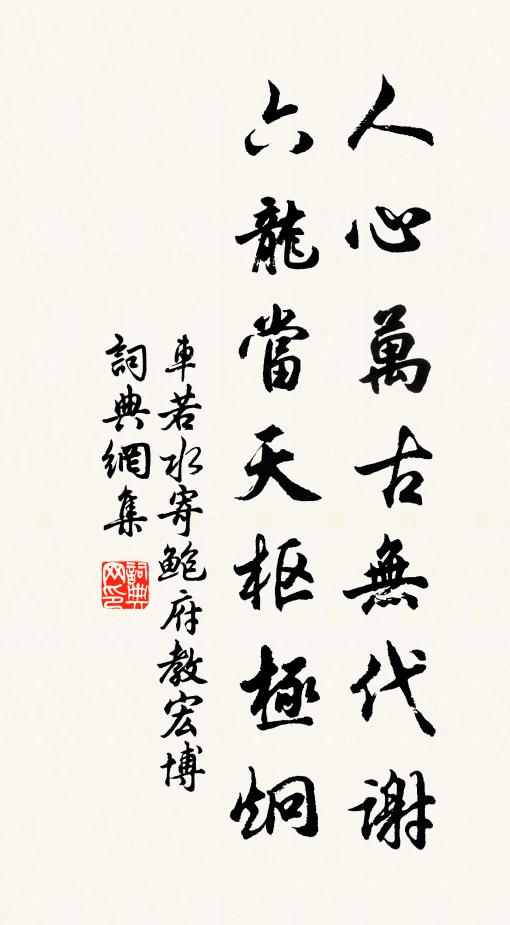 人心萬古無代謝
六龍當天枢極炯
車若水寄鮑府教宏博
詞典網集
詞典网印